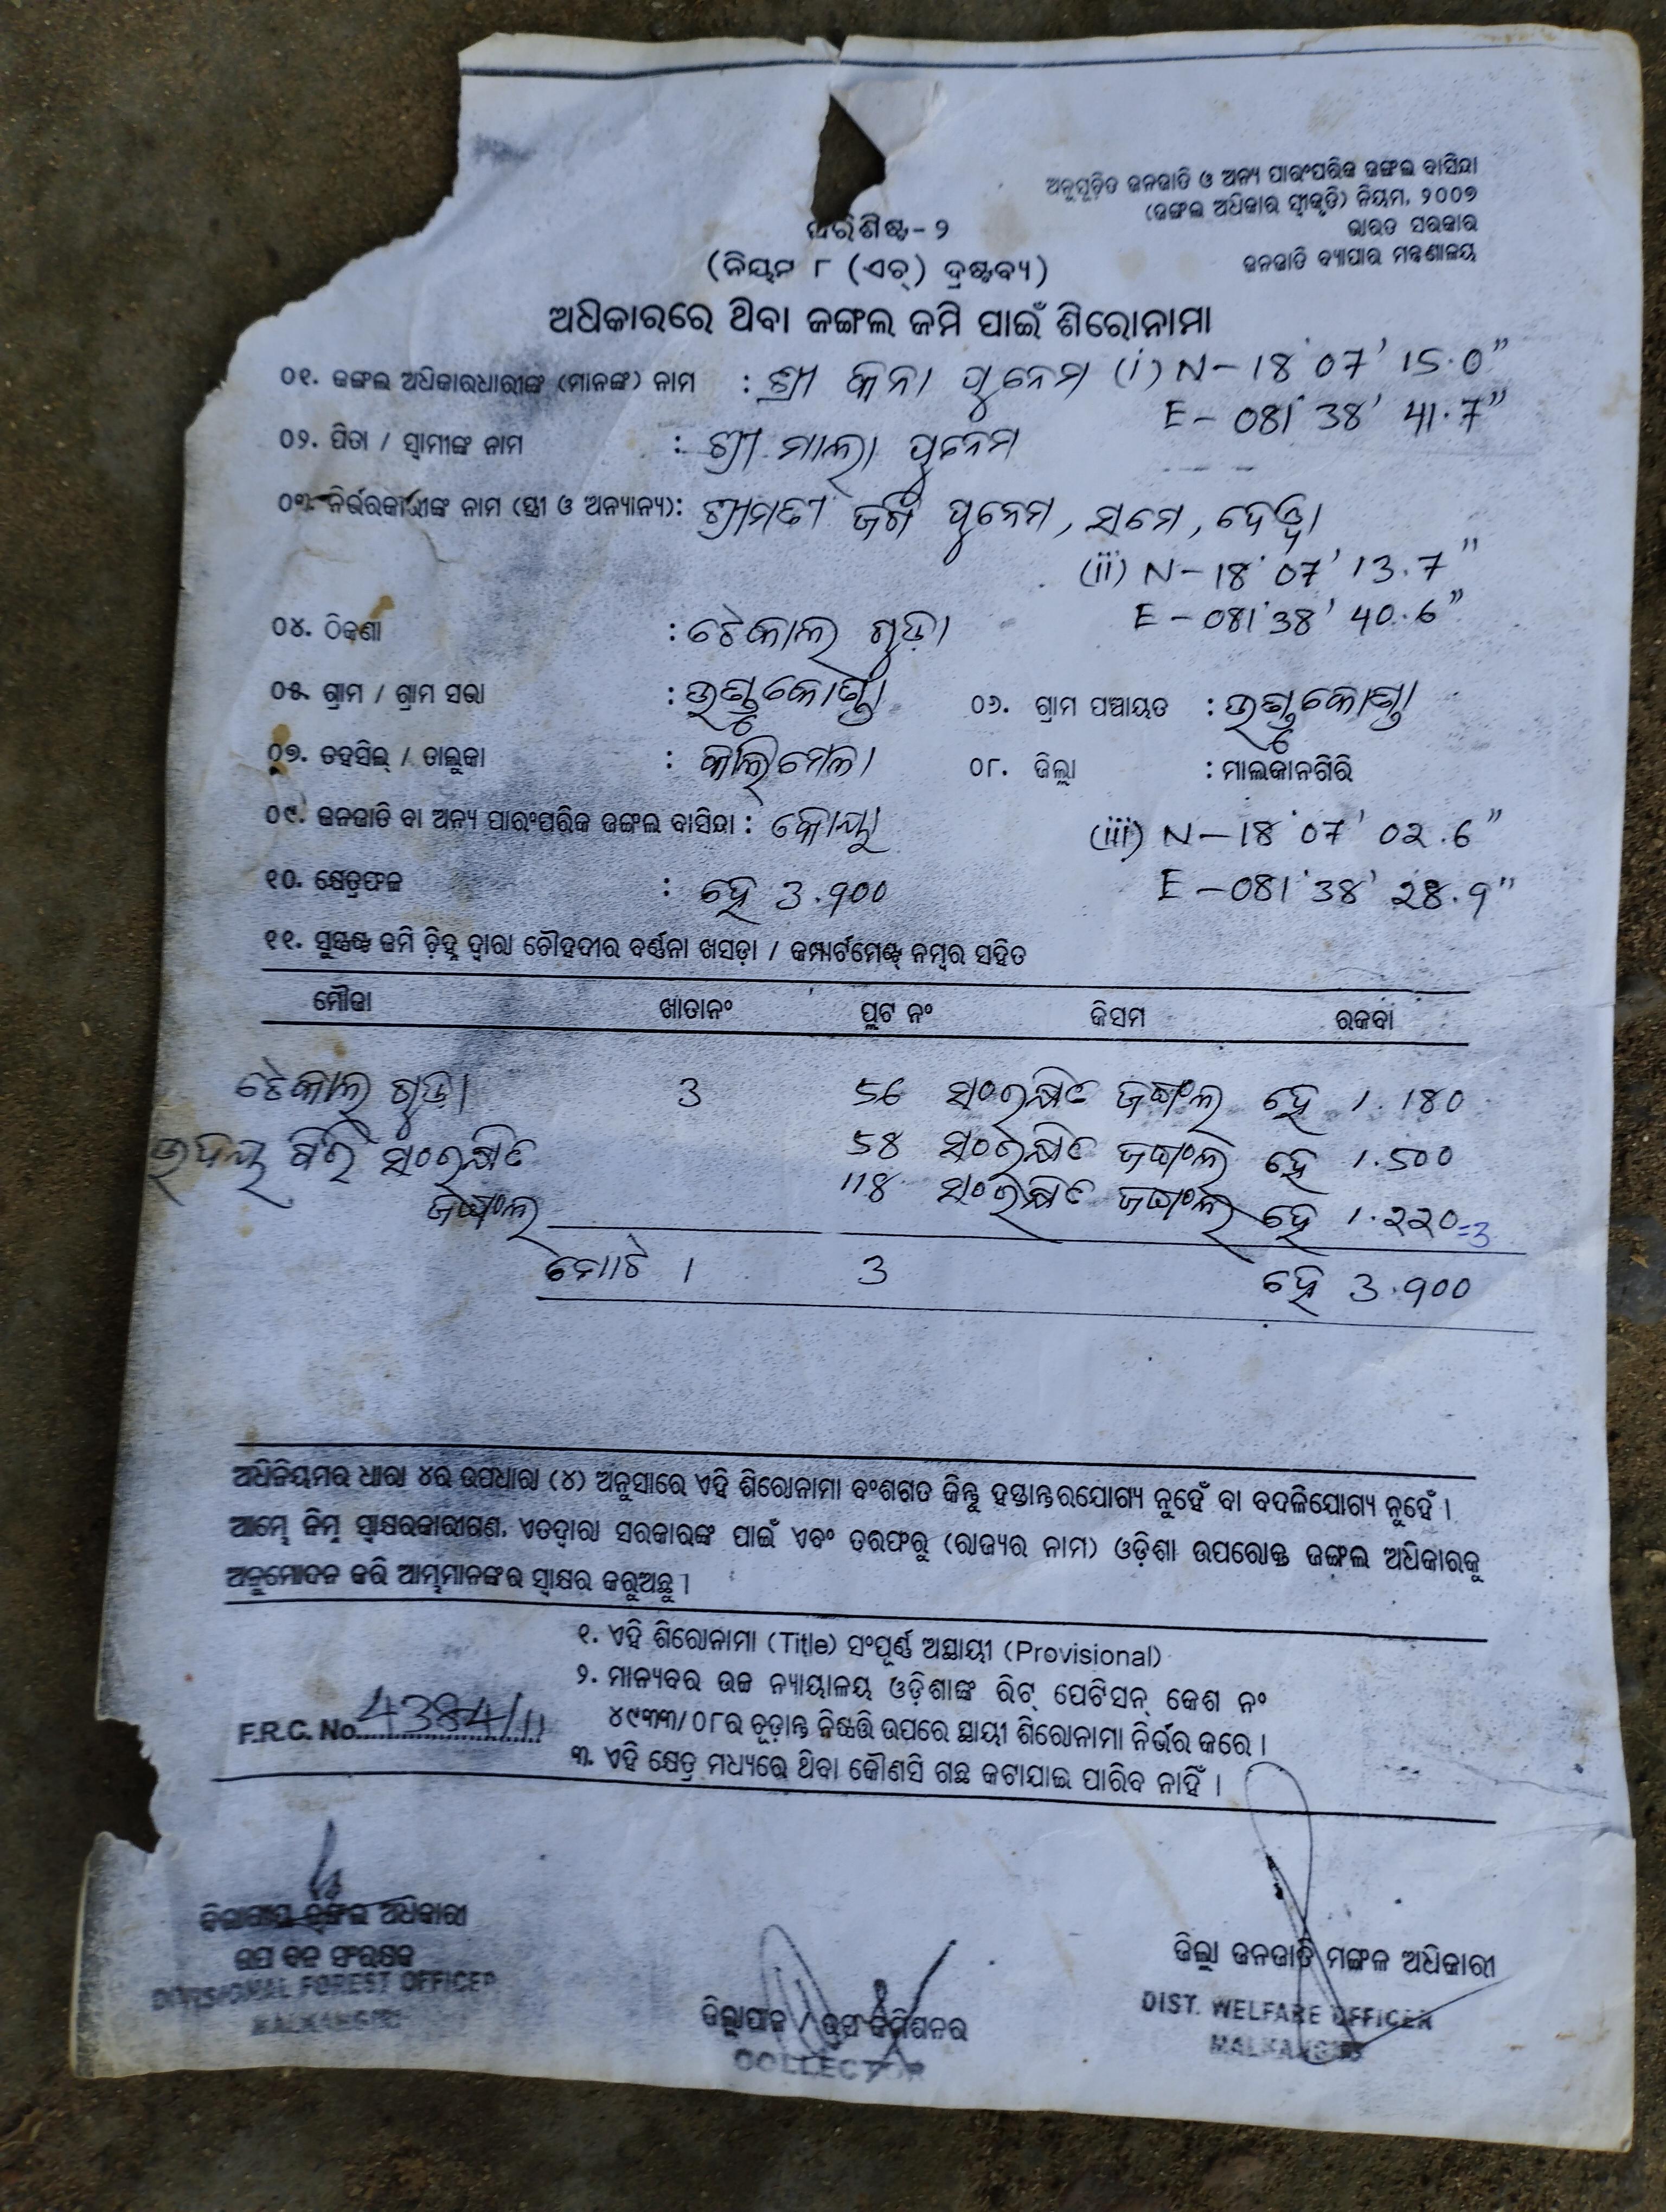 ଅନୁସୂଚିତ ଜନଜାତି ଓ ଅନ୍ୟ ପାରଂପରିକ ଜଙ୍ଗଲ ବାସିନ୍ଦା
(ଜଙ୍ଗଲ ଅଧିକାର ସ୍ୱୀକୃତି) ନିୟମ, ୨୦୦୭
ଭାରତ ସରକାର
ଜନଜାତି ବ୍ୟାପାର ମନ୍ତ୍ରଣାଳୟ
ପରିଶିଷ୍ଟ-୨
(ନିୟମ ୮ (ଏଚ୍) ଦ୍ରଷ୍ଟବ୍ୟ)
ଅଧିକାରରେ ଥିବା ଜଙ୍ଗଲ ଜମି ପାଇଁ ଶିରୋନାମା
୦୧. ଜଙ୍ଗଲ ଅଧିକାରଧାରୀଙ୍କ (ମାନଙ୍କ) ନାମ : ଶ୍ରୀ କିନା ପୁନେମ (i) N-18°07' 15.0"
E-081°38' 41.7"
୦୨. ପିତା / ସ୍ୱାମୀଙ୍କ ନାମ : ଶ୍ରୀ ମାଲା ପୁନେମ
୦୩. ନିର୍ଭରକାରୀଙ୍କ ନାମ (ସ୍ତ୍ରୀ ଓ ଅନ୍ୟାନ୍ୟ): ଶ୍ରୀମତୀ ପୁନେମ, ସମେ,
(ii) N-18°07' 13.7"
୦୪. ଠିକଣା : ଟେକାଲ ଗୁଡ଼ା E-081°38' 40.6"
୦୫. ଗ୍ରାମ / ଗ୍ରାମ ସଭା : ଉଣ୍ଡୁକୋଣ୍ଡା ୦୬. ଗ୍ରାମ ପଞ୍ଚାୟତ : ଉଣ୍ଡୁକୋଣ୍ଡା
୦୭. ତହସିଲ୍ / ତାଲୁକା : କାଲିମେଲା ୦୮. ଜିଲ୍ଲା : ମାଲକାନଗିରି
୦୯. ଜନଜାତି ବା ଅନ୍ୟ ପାରଂପରିକ ଜଙ୍ଗଲ ବାସିନ୍ଦା : କୋୟା (iii) N-18°07' 02.6"
୧୦. କ୍ଷେତ୍ରଫଳ : ହେ 3.900 E-081°38' 28.9"
୧୧. ସୁସ୍ପଷ୍ଟ ଜମି ଚିହ୍ନ ଦ୍ୱାରା ଚୌହଦୀର ବର୍ଣ୍ଣନା ଖସଡ଼ା / କମ୍ପାର୍ଟମେଣ୍ଟ ନମ୍ବର ସହିତ
ମୌଜା ଖାତାନଂ ପ୍ଲଟ ନଂ କିସମ ରକବା
ଟେକାଲ ଗୁଡ଼ା 3 56 ସଂରକ୍ଷିତ ଜଙ୍ଗଲ ହେ 1.180
ଉଦୟ ଗିରି ସଂରକ୍ଷିତ 58 ସଂରକ୍ଷିତ ଜଙ୍ଗଲ ହେ 1.500
ଜଙ୍ଗଲ 118 ସଂରକ୍ଷିତ ଜଙ୍ଗଲ ହେ 1.220=3
ମୋଟ 1 3 ହେ 3.900
ଅଧିନିୟମର ଧାରା ୪ର ଉପଧାରା (୪) ଅନୁସାରେ ଏହି ଶିରୋନାମା ବଂଶଗତ କିନ୍ତୁ ହସ୍ତାନ୍ତରଯୋଗ୍ୟ ନୁହେଁ ବା ବଦଳିଯୋଗ୍ୟ ନୁହେଁ ।
ଆମ୍ଭେ ନିମ୍ନ ସ୍ୱାକ୍ଷରକାରୀଗଣ, ଏତଦ୍ୱାରା ସରକାରଙ୍କ ପାଇଁ ଏବଂ ତରଫରୁ (ରାଜ୍ୟର ନାମ) ଓଡ଼ିଶା ଉପରୋକ୍ତ ଜଙ୍ଗଲ ଅଧିକାରକୁ
ଅନୁମୋଦନ କରି ଆମ୍ଭମାନଙ୍କର ସ୍ୱାକ୍ଷର କରୁଅଛୁ ।
୧. ଏହି ଶିରୋନାମା (Title) ସଂପୂର୍ଣ୍ଣ ଅସ୍ଥାୟୀ (Provisional)
୨. ମାନ୍ୟବର ଉଚ୍ଚ ନ୍ୟାୟାଳୟ ଓଡ଼ିଶାଙ୍କ ରିଟ୍ ପେଟିସନ୍ କେଶ ନଂ
୪୯୩୩/୦୮ର ଚୂଡ଼ାନ୍ତ ନିଷ୍ପତ୍ତି ଉପରେ ସ୍ଥାୟୀ ଶିରୋନାମା ନିର୍ଭର କରେ ।
F.R.C. No. 4384/11
୩. ଏହି କ୍ଷେତ୍ର ମଧ୍ୟରେ ଥିବା କୌଣସି ଗଛ କଟାଯାଇ ପାରିବ ନାହିଁ ।
ବିଭାଗୀୟ ଜଙ୍ଗଲ ଅଧିକାରୀ
ଉପ ବନ ସଂରକ୍ଷକ
DIVISIONAL FOREST OFFICER
MALKANGIRI
ଜିଲ୍ଲାପାଳ / ଉପ କମିଶନର
COLLECTOR
ଜିଲ୍ଲା ଜନଜାତି ମଙ୍ଗଳ ଅଧିକାରୀ
DIST. WELFARE OFFICER
MALKANGIRI